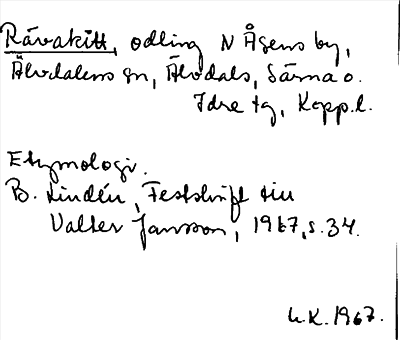 Råvakitt, odling N Åsens by,
Älvdalens sn, Älvdals, Särna o.
Idre tg, Kopp.l.
Etymologi.
B. Lindén, Festskrift till
Valter Jansson, 1967, s. 34.
L.K. 1967.